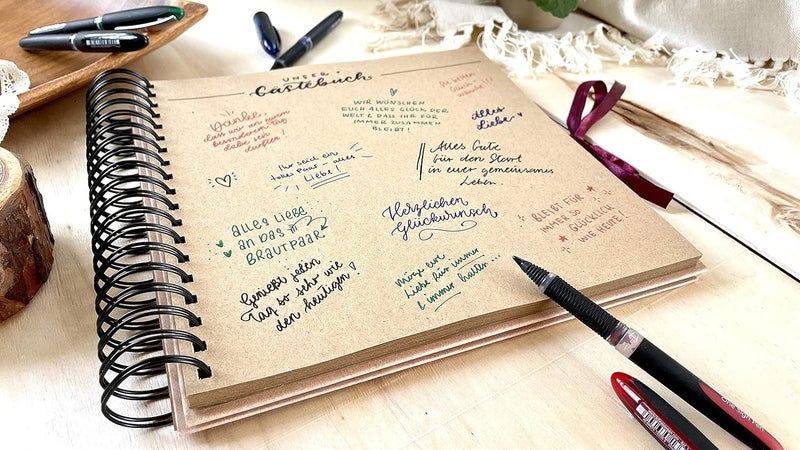 UNSER
Gästebuch
Danke,
dass wir an eurem
besonderen Tag
dabei sein
durften!
WIR WÜNSCHEN
EUCH ALLES GLÜCK DER
WELT & DASS IHR FÜR
IMMER ZUSAMMEN
BLEIBT!
Die besten
Glück-
wünsche!!!
Alles
Liebe
Ihr seid ein
tolles Paar - alles
Liebe!
Alles Gute
für den Start
in euer gemeinsames
Leben.
ALLES LIEBE
AN DAS
BRAUTPAAR
Herzlichen
Glückwunsch
BLEIBT FÜR
IMMER SO
GLÜCKLICH
WIE HEUTE!
Genießt jeden
Tag so sehr wie
den heutigen!
Möge eure
Liebe für immer
& immer halten...